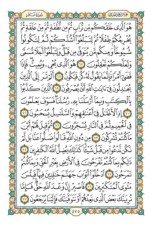 هُوَ الَّذِي خَلَقَكُم مِّن تُرَابٍ ثُمَّ مِن نُّطْفَةٍ ثُمَّ مِنْ عَلَقَةٍ ثُمَّ
يُخْرِجُكُمْ طِفْلًا ثُمَّ لِتَبْلُغُوا أَشُدَّكُمْ ثُمَّ لِتَكُونُوا
شُيُوخًا وَمِنكُم مَّن يُتَوَفَّىٰ مِن قَبْلُ وَلِتَبْلُغُوا أَجَلًا مُّسَمًّى
وَلَعَلَّكُمْ تَعْقِلُونَ ٦٧ هُوَ الَّذِي يُحْيِي وَيُمِيتُ فَإِذَا
قَضَىٰ أَمْرًا فَإِنَّمَا يَقُولُ لَهُ كُن فَيَكُونُ ٦٨ أَلَمْ تَرَ إِلَى الَّذِينَ
يُجَادِلُونَ فِي آيَاتِ اللَّهِ أَنَّىٰ يُصْرَفُونَ ٦٩ الَّذِينَ كَذَّبُوا
بِالْكِتَابِ وَبِمَا أَرْسَلْنَا بِهِ رُسُلَنَا فَسَوْفَ يَعْلَمُونَ
٧٠ إِذِ الْأَغْلَالُ فِي أَعْنَاقِهِمْ وَالسَّلَاسِلُ يُسْحَبُونَ ٧١
فِي الْحَمِيمِ ثُمَّ فِي النَّارِ يُسْجَرُونَ ٧٢ ثُمَّ قِيلَ لَهُمْ أَيْنَ مَا
كُنتُمْ تُشْرِكُونَ ٧٣ مِن دُونِ اللَّهِ قَالُوا ضَلُّوا عَنَّا بَل لَّمْ نَكُن
نَّدْعُوا مِن قَبْلُ شَيْئًا كَذَٰلِكَ يُضِلُّ اللَّهُ الْكَافِرِينَ ٧٤
ذَٰلِكُم بِمَا كُنتُمْ تَفْرَحُونَ فِي الْأَرْضِ بِغَيْرِ الْحَقِّ وَبِمَا كُنتُمْ
تَمْرَحُونَ ٧٥ ادْخُلُوا أَبْوَابَ جَهَنَّمَ خَالِدِينَ فِيهَا فَبِئْسَ
مَثْوَى الْمُتَكَبِّرِينَ ٧٦ فَاصْبِرْ إِنَّ وَعْدَ اللَّهِ حَقٌّ فَإِمَّا
نُرِيَنَّكَ بَعْضَ الَّذِي نَعِدُهُمْ أَوْ نَتَوَفَّيَنَّكَ فَإِلَيْنَا يُرْجَعُونَ ٧٧